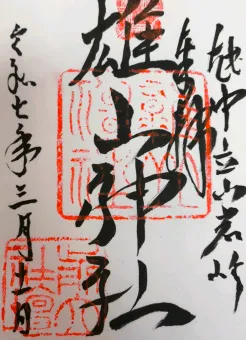 越中立山岩峅
奉拝
雄山神社
令和七年三月十一日